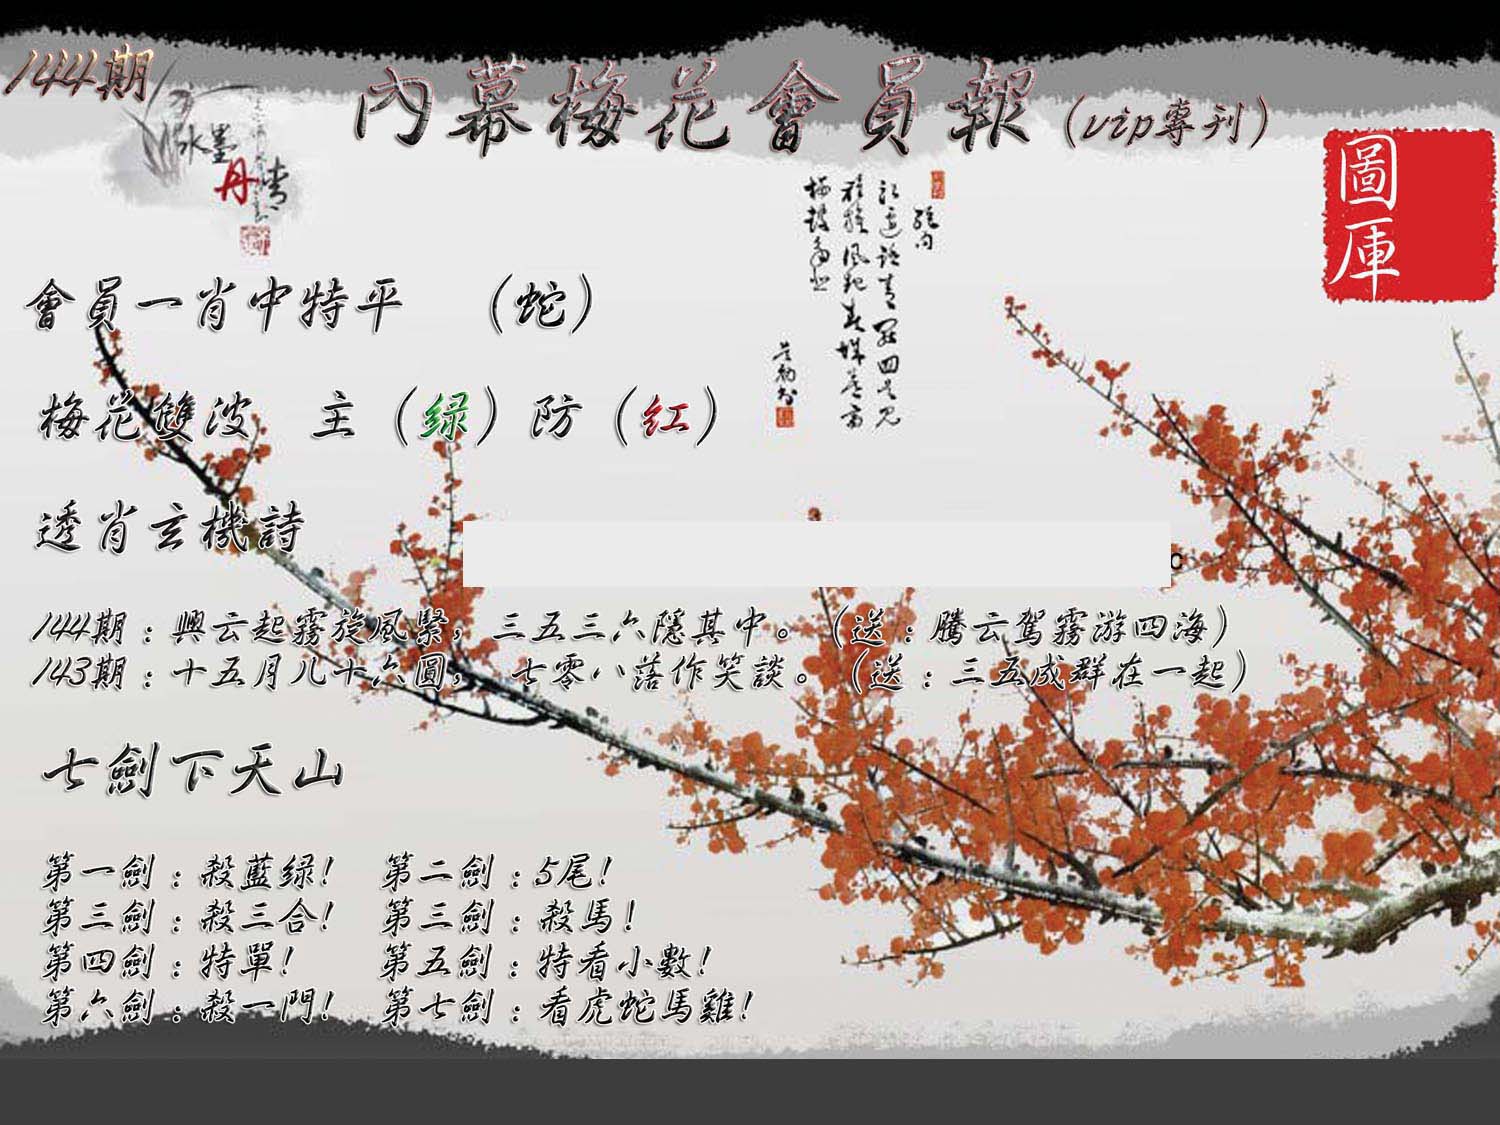 144期
內幕梅花會員報(vip專刊)
水墨
丹青
圖
庫
會員一肖中特平 (蛇)
梅花雙波 主(绿)防(红)
透肖玄機詩
c
144期:興云起霧旋風緊,三五三六隱其中。(送:騰云駕霧游四海)
143期:十五月儿十六圓, 七零八落作笑談。(送:三五成群在一起)
七劍下天山
第一劍:殺藍绿! 第二劍:5尾!
第三劍:殺三合! 第三劍:殺馬!
第四劍:特單! 第五劍:特看小數!
第六劍:殺一門! 第七劍:看虎蛇馬雞!